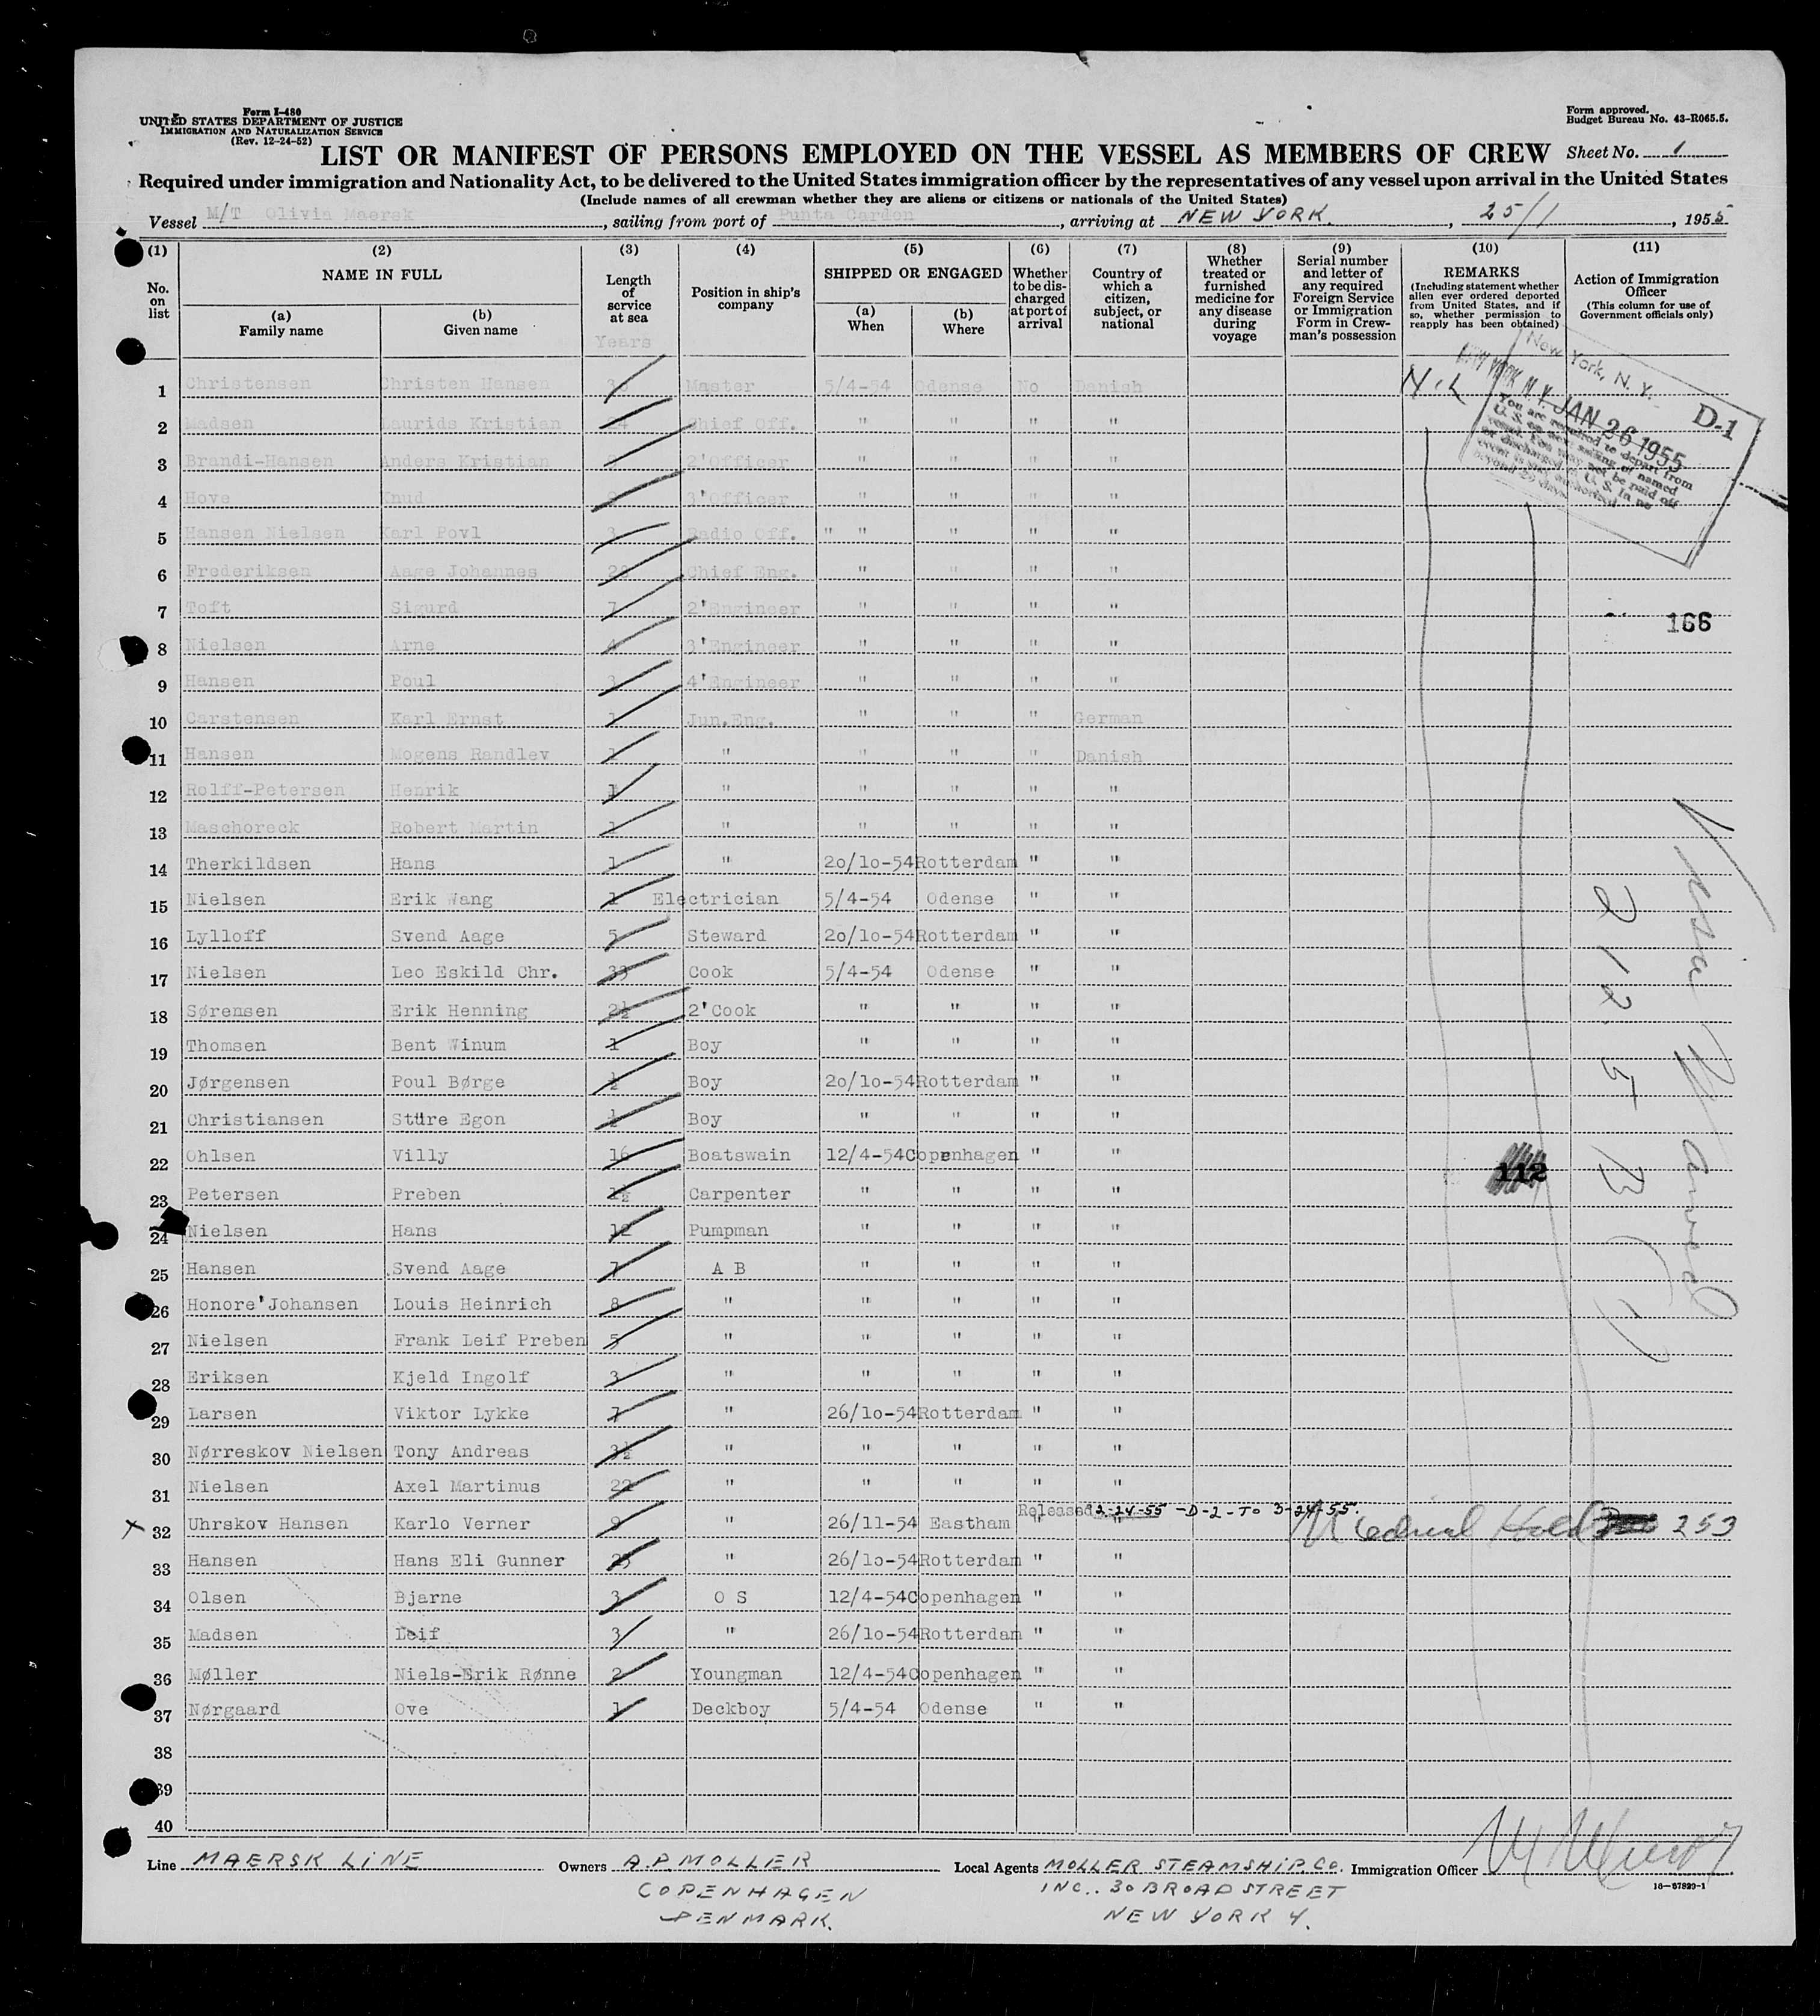 Form I-480
UNITED STATES DEPARTMENT OF JUSTICE
IMMIGRATION AND NATURALIZATION SERVICE
(Rev. 12-24-52)
Form approved.
Budget Bureau No. 43-R065.5.
LIST OR MANIFEST OF PERSONS EMPLOYED ON THE VESSEL AS MEMBERS OF CREW Sheet No. 1
Required under immigration and Nationality Act, to be delivered to the United States immigration officer by the representatives of any vessel upon arrival in the United States
(Include names of all crewman whether they are aliens or citizens or nationals of the United States)
Vessel M/T Olivia Maersk, sailing from port of Punta Cardon, arriving at NEW YORK, 25/1, 1955
(1) (2) (3) (4) (5) (6) (7) (8) (9) (10) (11)
No. on list
NAME IN FULL
(a) Family name
(b) Given name
Length of service at sea
Years
Position in ship's company
SHIPPED OR ENGAGED
(a) When
(b) Where
Whether to be discharged at port of arrival
Country of which a citizen, subject, or national
Whether treated or furnished medicine for any disease during voyage
Serial number and letter of any required Foreign Service or Immigration Form in Crewman's possession
REMARKS
(Including statement whether alien ever ordered deported from United States, and if so, whether permission to reapply has been obtained)
Action of Immigration Officer
(This column for use of Government officials only)
1 Christensen Christen Hansen Master 5/4-54 Odense No Danish
2 Madsen Laurids Kristian Chief Off. " " " "
3 Brandi-Hansen Anders Kristian 2'Officer " " " "
4 Hove Knud 3'Officer " " " "
5 Hansen Nielsen Karl Povl 3 Radio Off. " " " " "
6 Frederiksen Aage Johannes Chief Eng. " " " "
7 Toft Sigurd 7 2'Engineer " " " "
8 Nielsen Arne 4 3'Engineer " " " "
9 Hansen Poul 3 4'Engineer " " " "
10 Carstensen Karl Ernst 1 Jun.Eng. " " " German
11 Hansen Mogens Randlev 1 " " " " Danish
12 Rolff-Petersen Henrik 1 " " " " "
13 Maschoreck Robert Martin 1 " " " " "
14 Therkildsen Hans 1 " 20/10-54 Rotterdam " "
15 Nielsen Erik Wang 1 Electrician 5/4-54 Odense " "
16 Lylloff Svend Aage 5 Steward 20/10-54 Rotterdam " "
17 Nielsen Leo Eskild Chr. 33 Cook 5/4-54 Odense " "
18 Sørensen Erik Henning 2½ 2'Cook " " " "
19 Thomsen Bent Winum 1 Boy " " " "
20 Jørgensen Poul Børge ½ Boy 20/10-54 Rotterdam " "
21 Christiansen Stüre Egon ½ Boy " " " "
22 Ohlsen Villy 16 Boatswain 12/4-54 Copenhagen " "
23 Petersen Preben 1½ Carpenter " " " "
24 Nielsen Hans 12 Pumpman " " " "
25 Hansen Svend Aage 7 A B " " " "
26 Honore'Johansen Louis Heinrich 8 " " " " "
27 Nielsen Frank Leif Preben 5 " " " " "
28 Eriksen Kjeld Ingolf 3 " " " " "
29 Larsen Viktor Lykke 7 " 26/10-54 Rotterdam " "
30 Nørreskov Nielsen Tony Andreas 3½ " " " " "
31 Nielsen Axel Martinus 22 " " " " "
Released 2-24-55 -D-2-To 3-24-55.
X 32 Uhrskov Hansen Karlo Verner 9 " 26/11-54 Eastham " " Medical Hold 253
33 Hansen Hans Eli Gunner 23 " 26/10-54 Rotterdam " "
34 Olsen Bjarne 3 O S 12/4-54 Copenhagen " "
35 Madsen Leif 3 " 26/10-54 Rotterdam " "
36 Møller Niels-Erik Rønne 2 Youngman 12/4-54 Copenhagen " "
37 Nørgaard Ove 1 Deckboy 5/4-54 Odense " "
38
39
40
New York, N. Y.
NEW YORK N.Y. JAN 26 1955
D-1
You are required to depart from
166
112
Line MAERSK LINE Owners A.P. MOLLER Local Agents MOLLER STEAMSHIP. CO. Immigration Officer
COPENHAGEN INC.. 30 BROAD STREET
DENMARK. NEW YORK 4.
16-67899-1